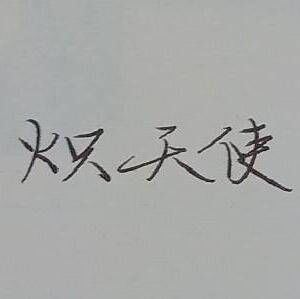 炽天使